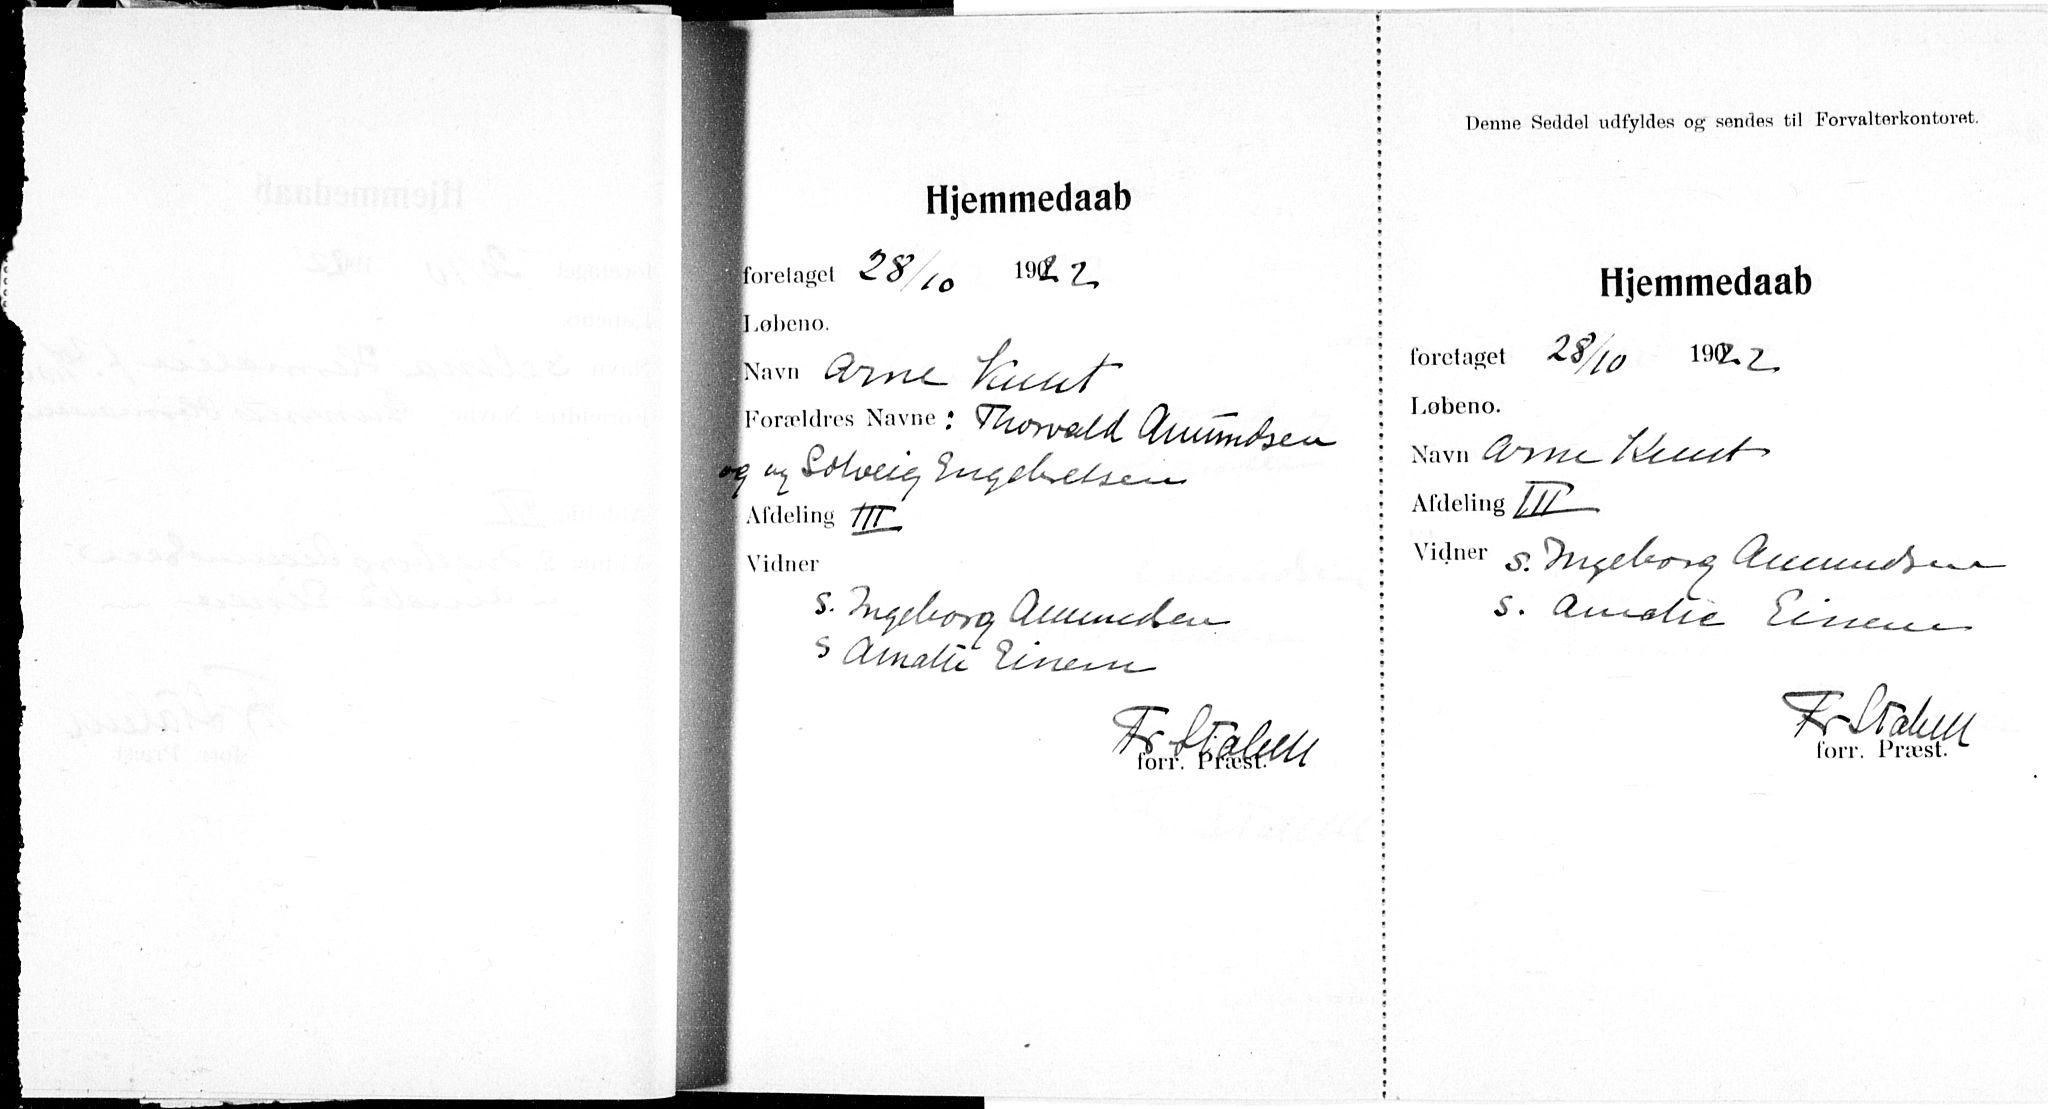 Hjemmedaab
foretaget 28/10 1922
Løbeno.
Navn Arne Knut
Forældres Navne: Thorvald Amundsen
og ug Solveig Engebretsen
Afdeling III
Vidner
S. Ingeborg Amundsen
S Amalie Einem
Fr Stabell
forr. Præst.
Denne Seddel udfyldes og sendes til Forvalterkontoret.
Hjemmedaab
foretaget 28/10 1922
Løbeno.
Navn Arne Knut
Afdeling III
Vidner S. Ingeborg Amundsen
S. Amalie Einem
Fr Stabell
forr. Præst.